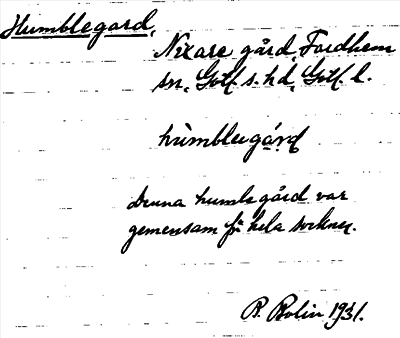 Humblegard,
Nixare gård, Fardhem
sn, Gotl s. hd, Gotl l.
humblegård
denna humlegård var
gemensam för hela socknen.
B. Bolin 1931.